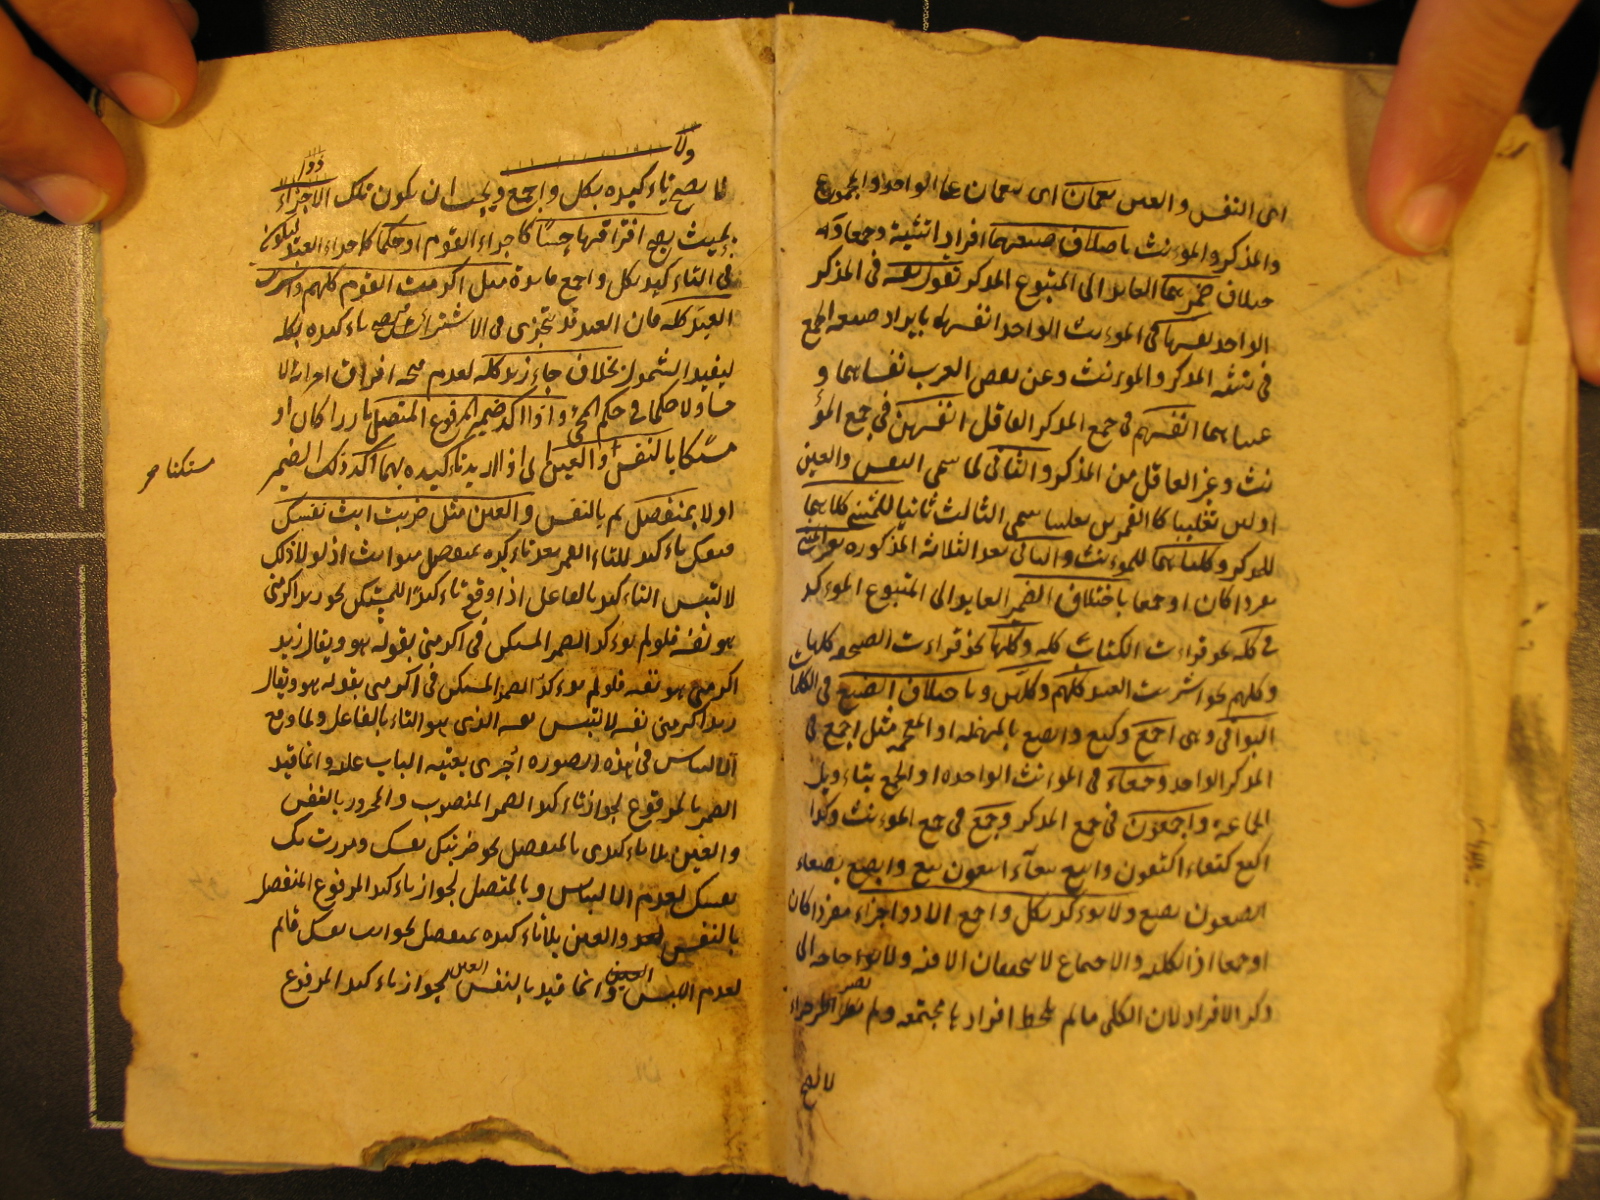 اى النفس والعين يعمان اى يعمان عا الواحد والمجموع
والمذكر والموءنث باختلاف صيغهما افرادا تثنية وجمعا و
اختلاف ضميرهما العايد الى المتبوع المذكر تقول نفسه فى المذكر
الواحد نفسها فى الموءنث الواحد انفسهما بايراد صيغه الجمع
فى تثنيه المذكر والموءنث وعن بعض العرب نفساهما و
عيناهما انفسهم فى جمع المذكر العاقل انفسهن فى جمع المؤ
نث وغير العاقل من المذكر والثانى لما سمى النفس والعين
اولين تغليبا كالقمرين سمى الثالث ثانيا للمثنى كلاهما
للمذكر وكلتاهما للموءنث والباقى بعد الثلاثه المذكوره لغير المثنى
مفردا كان او جمعا باختلاف الضمير العايد الى المتبوع الموءكد
فى كله نحو قراءت الكتاب كله وكلها نحو قراءت الصحيفه كلها
وكلهم نحو اشتريت العبيد كلهم وكلهن وباختلاف الصيغ فى الكلمات
البواقى وهى اجمع واكتع وابتع وابصع بالمهمله او المعجمه مثل اجمع فى
المذكر الواحد وجمعاء فى الموءنث الواحده او الجمع بتاءويل
الجماعة واجمعون فى جمع المذكر وجمع فى جمع الموءنث وكذا
اكتع كتعاء اكتعون وابتع بتعآء ابتعون بتع وابصع بصعاء
ابصعون بصع ولا يوءكد بكل واجمع الا ذو اجزاء مفردا كان
او جمعا اذ الكليه والاجتماع لا يتحققان الا فيه ولا حاجه الى
ذكر الافراد لان الكلى مالم يلحظ افراده مجتمعه ولم تصر اجزاء
لا يصح
ولا
ذو ا
لا يصح تاءكيده بكل واجمع ويجب ان يكون تلك الاجزاء
بحيث يصح افتراقها حسًّا كاجزاء القوم او حكما كاجزاء العبد ليكون
فى التاءكيد بكل واجمع فايدة مثل اكرمت القوم كلهم واشتريت
العبد كله فان العبد قد يتجزى فى الاشتراء فيصح تاءكيده بكله
ليفيد الشمول بخلاف جاء زيد كله لعدم صحه افتراق اجزائه لا
حسا ولا حكما فى حكم المجئ واذا اكد ضمير المرفوع المتصل بارزا كان او
مستكنا بالنفس والعين اى اذا اريد تاءكيده بهما اكد ذلك الضمير
مستكنا صح
اولا بمنفصل ثم بالنفس والعين مثل ضربت انت نفسك
فنفسك تاءكيد للتاء الضمير بعد تاءكيده بمنفصل هو انت اذ لولا ذلك
لالتبس التاءكيد بالفاعل اذا وقع تاءكيدًا للمستكن نحو زيد اكرمنى
هو نفسه فلو لم يوءكد الضمير المستكن فى اكرمنى بقوله هو ويقال زيد
اكرمنى هو نفسه فلو لم يوءكد الضمير المستكن فى اكرمنى بقوله هو ويقال
زيد اكرمنى نفسه لالتبس نفسه الذى هو التاء بالفاعل ولما وقع
الالتباس فى هذه الصوره أجرى بقيه الباب عليه وانما قيد
الضمير بالمرفوع لجواز تاءكيد الضمير المنصوب والمجرور بالنفس
والعين بلا تاءكيد بالمنفصل نحو ضربتك نفسك ومررت بك
نفسك لعدم الالتباس وبالمتصل لجواز تاءكيد المرفوع المنفصل
بالنفس والعين بلا تاءكيده بمنفصل نحو انت نفسك قائم
لعدم اللبس وانما قيد بالنفس والعين لجواز تاءكيد المرفوع